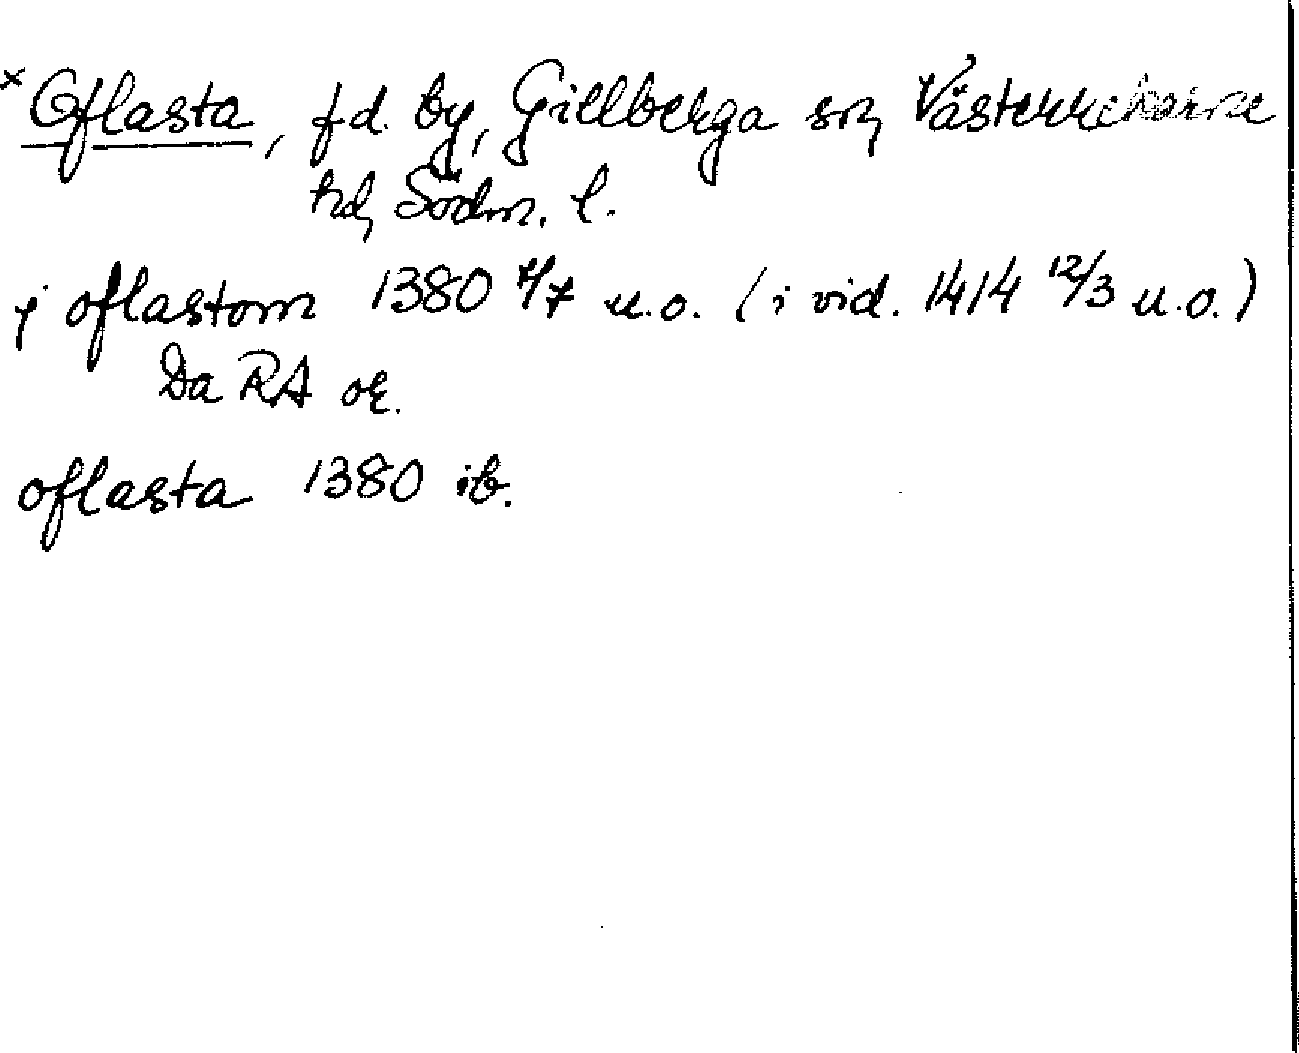 × Oflasta, f.d. by, Gillberga sn, Västerrekarne
hd, Södm. l.
j oflastom 1380 /7 u.o. (i vid. 1414 12/3 u.o.)
Da RA or.
oflasta 1380 ib.